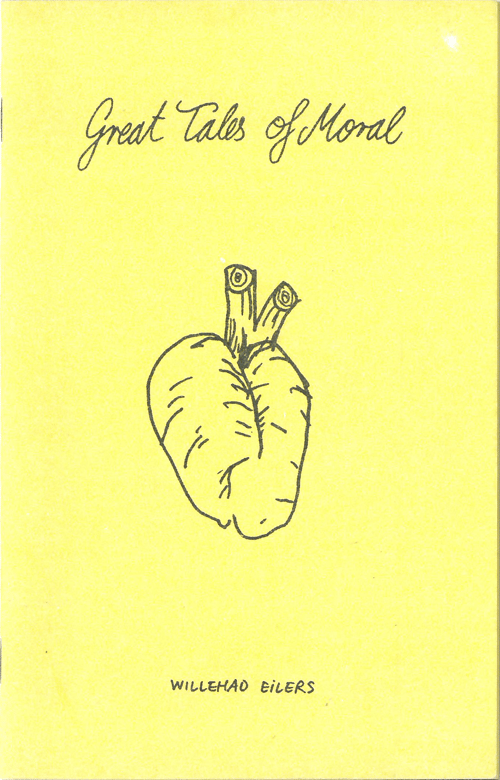 Great Tales of Moral
WILLEHAD EiLERS